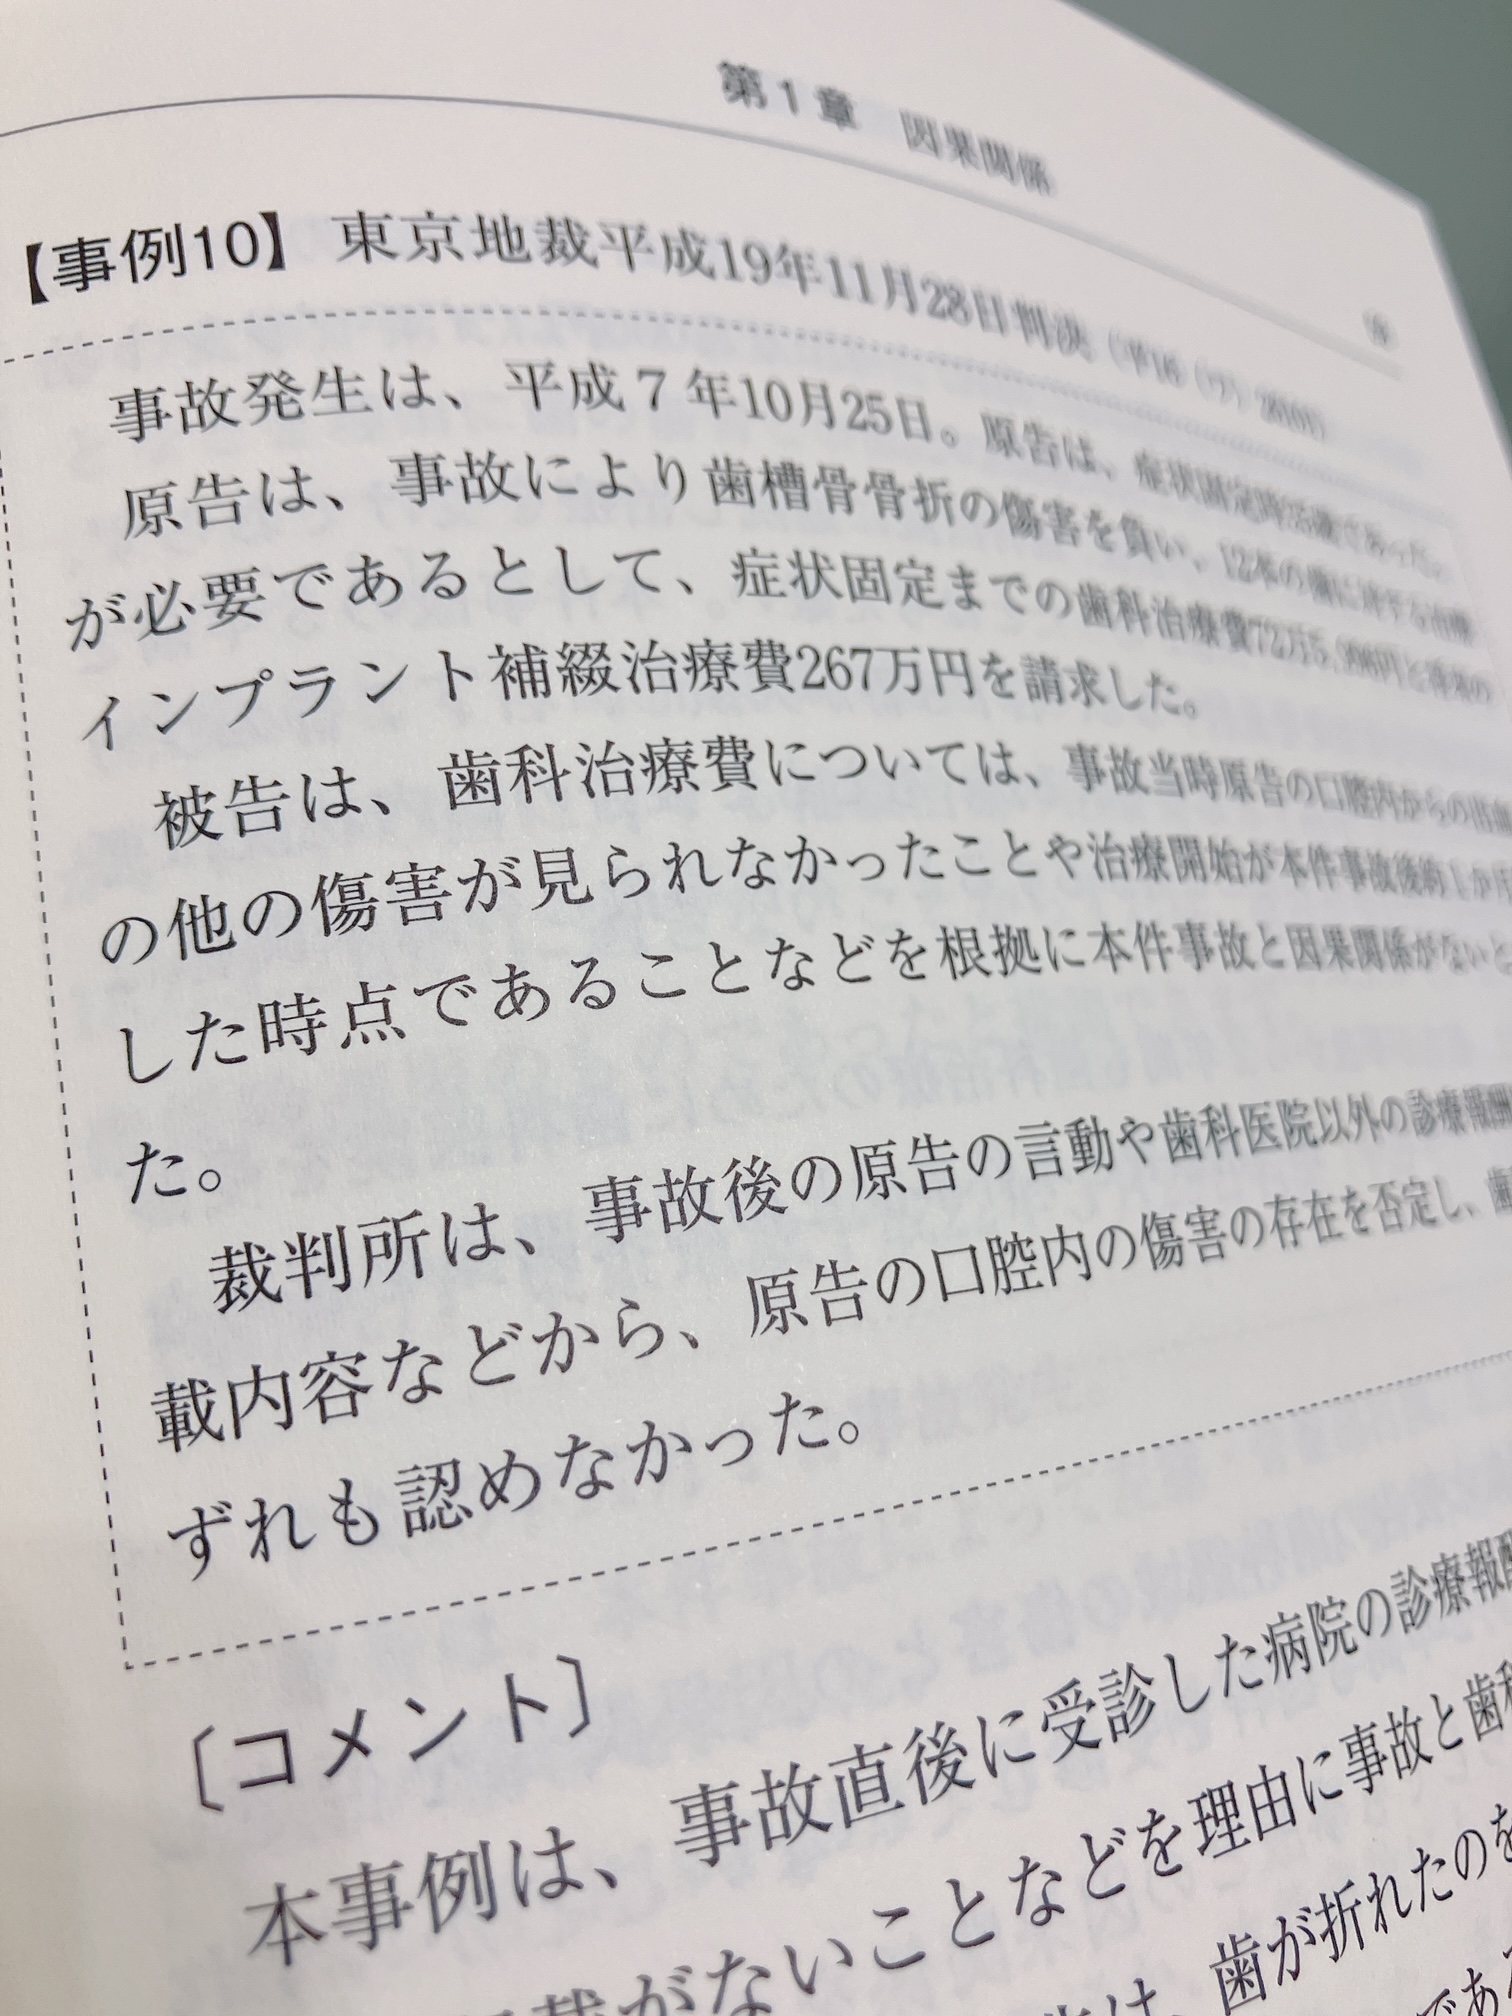 第1章 因果関係
【事例10】 東京地裁平成19年11月28日判決
事故発生は、平成7年10月25日。原告は、症状固定時活躍であった。
原告は、事故により歯槽骨骨折の傷害を負い、12本の歯に対する治療
が必要であるとして、症状固定までの歯科治療費72万5,996円と将来の
インプラント補綴治療費267万円を請求した。
被告は、歯科治療費については、事故当時原告の口腔内からの出血
の他の傷害が見られなかったことや治療開始が本件事故後約1か月
した時点であることなどを根拠に本件事故と因果関係がないと
た。
裁判所は、事故後の原告の言動や歯科医院以外の診療報酬
載内容などから、原告の口腔内の傷害の存在を否定し、歯
ずれも認めなかった。
〔コメント〕
本事例は、事故直後に受診した病院の診療報酬
載がないことなどを理由に事故と歯科
は、歯が折れたのを
であ